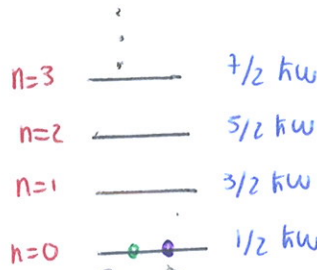 n=3 7/2 ħω
n=2 5/2 ħω
n=1 3/2 ħω
n=0 1/2 ħω